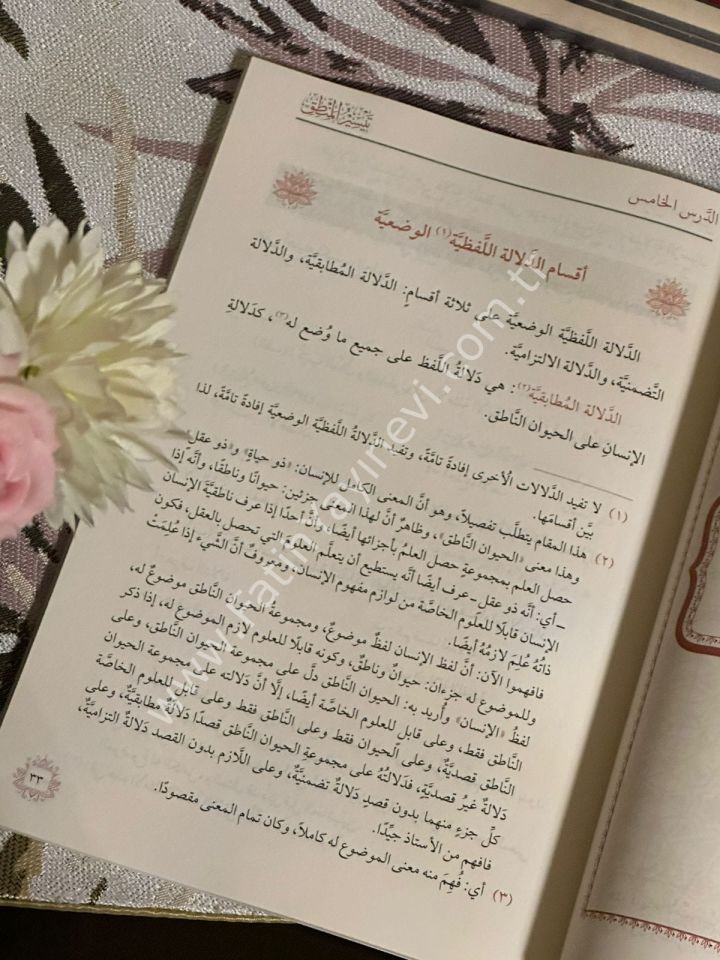 تيسير المنطق
الدَّرس الخامس
أقسام الدَّلالة اللَّفظيَّة(١) الوضعيَّة
الدَّلالة اللَّفظيَّة الوضعيَّة على ثلاثة أقسامٍ: الدَّلالة المُطابقيَّة، والدَّلالة
التَّضمنيَّة، والدَّلالة الالتزاميَّة.
الدَّلالة المُطابقيَّة(٢): هي دَلالةُ اللَّفظ على جميع ما وُضع له(٣)، كدَلالةِ
الإنسانِ على الحيوان النَّاطق.
(١) لا تفيد الدَّلالات الأخرى إفادةً تامَّة، وتفيد الدَّلالةُ اللَّفظيَّة الوضعيَّة إفادةً تامَّةً، لذا
بيَّن أقسامَها.
(٢) هذا المقام يتطلَّب تفصيلًا، وهو أنَّ المعنى الكامل للإنسان: «ذو حياةٍ» و«ذو عقلٍ»
وهذا معنى «الحيوان النَّاطق»، وظاهرٌ أنَّ لهذا المعنى جزئين: حيوانًا وناطقًا، وأنَّه إذا
حصل العلم بمجموعةٍ حصل العلمُ بأجزائها أيضًا، وأنَّ أحدًا إذا عرف ناطقيَّة الإنسان
ـ أي: أنَّه ذو عقل ـ عرف أيضًا أنَّه يستطيع أن يتعلَّم العلوم التي تحصل بالعقل، فكون
الإنسان قابلًا للعلوم الخاصَّة من لوازم مفهوم الإنسان، ومعروفٌ أنَّ الشَّيء إذا عُلِمَتْ
ذاتُهُ عُلِمَ لازمُهُ أيضًا.
فافهموا الآن: أنَّ لفظ الإنسان لفظٌ موضوعٌ، ومجموعةُ الحيوان النَّاطق موضوعٌ له،
وللموضوع له جزءان: حيوانٌ وناطقٌ، وكونه قابلًا للعلوم لازم الموضوع له، إذا ذكر
لفظُ «الإنسان» وأُريد به: الحيوان النَّاطق دلَّ على مجموعة الحيوان النَّاطق، وعلى
النَّاطق فقط، وعلى قابل للعلوم الخاصَّة أيضًا، إلَّا أنَّ دَلالته على مجموعة الحيوان
النَّاطق قصديَّةٌ، وعلى الحيوان فقط وعلى النَّاطق فقط وعلى قابل للعلوم الخاصَّة
دَلالةٌ غيرُ قصديَّةٍ، فدَلالتُهُ على مجموعةِ الحيوان النَّاطق قصدًا دَلالةٌ مطابقيَّةٌ، وعلى
كلِّ جزءٍ منهما بدون قصدٍ دَلالةٌ تضمنيَّةٌ، وعلى اللَّازم بدون القصد دَلالةٌ التزاميَّةٌ،
فافهم من الأستاذ جيِّدًا.
(٣) أي: فُهِمَ منه معنى الموضوع له كاملًا، وكان تمام المعنى مقصودًا.
٣٣
www.fatihyayinevi.com.tr